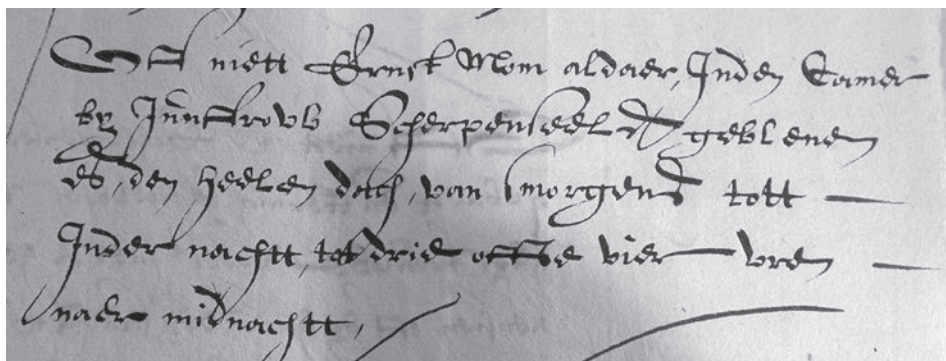 Off niett Ernst Mom aldaer, Inden Camer
by Junffrouw Scherpenseel gebleuen
es, den heelen dach, van smorgens tott
Inder nachtt, tot drie offte vier vren
naer midnachtt,